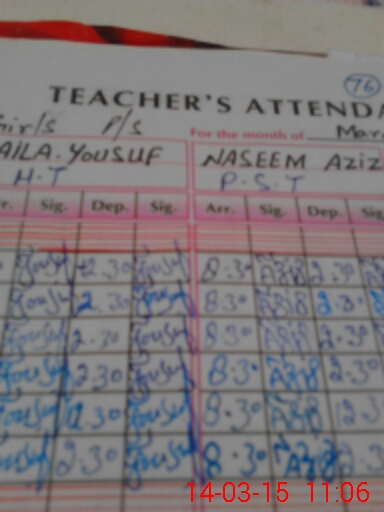 76
TEACHER'S ATTENDA
Girls P/S For the month of Mar
AILA. YOUSUF NASEEM AZIZ
H.T P.S.T
r. Sig. Dep. Sig. Arr. Sig. Dep. Sig
Yousuf 2.30 Yousuf 8.30 Aziz 2.30
Yousuf 2.30 Yousuf 8.30 Aziz 2.30
Yousuf 2.30 Yousuf 8.30 Aziz 2.30
Yousuf 2.30 Yousuf 8.30 Aziz 2.30
Yousuf 2.30 Yousuf 8.30 Aziz 2.3
Yousuf 2.30 Yousuf 8.30 Aziz 2.30
14-03-15 11:06